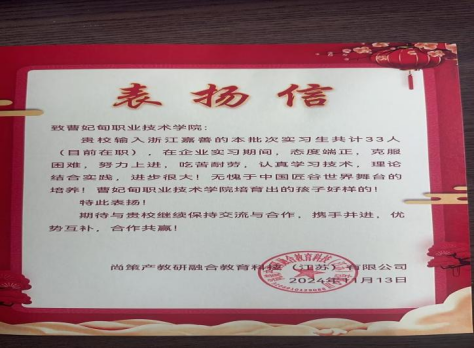 表扬信
致曹妃甸职业技术学院：
贵校输入浙江嘉善的本批次实习生共计33人
（目前在职），在企业实习期间，态度端正，克服
困难，努力上进，吃苦耐劳，认真学习技术，理论
结合实践，进步很大！无愧于中国匠谷世界舞台的
培养！曹妃甸职业技术学院培育出的孩子好样的！
特此表扬！
期待与贵校继续保持交流与合作，携手并进，优
势互补，合作共赢！
尚策产教研融合教育科技（江苏）有限公司
2024年11月13日